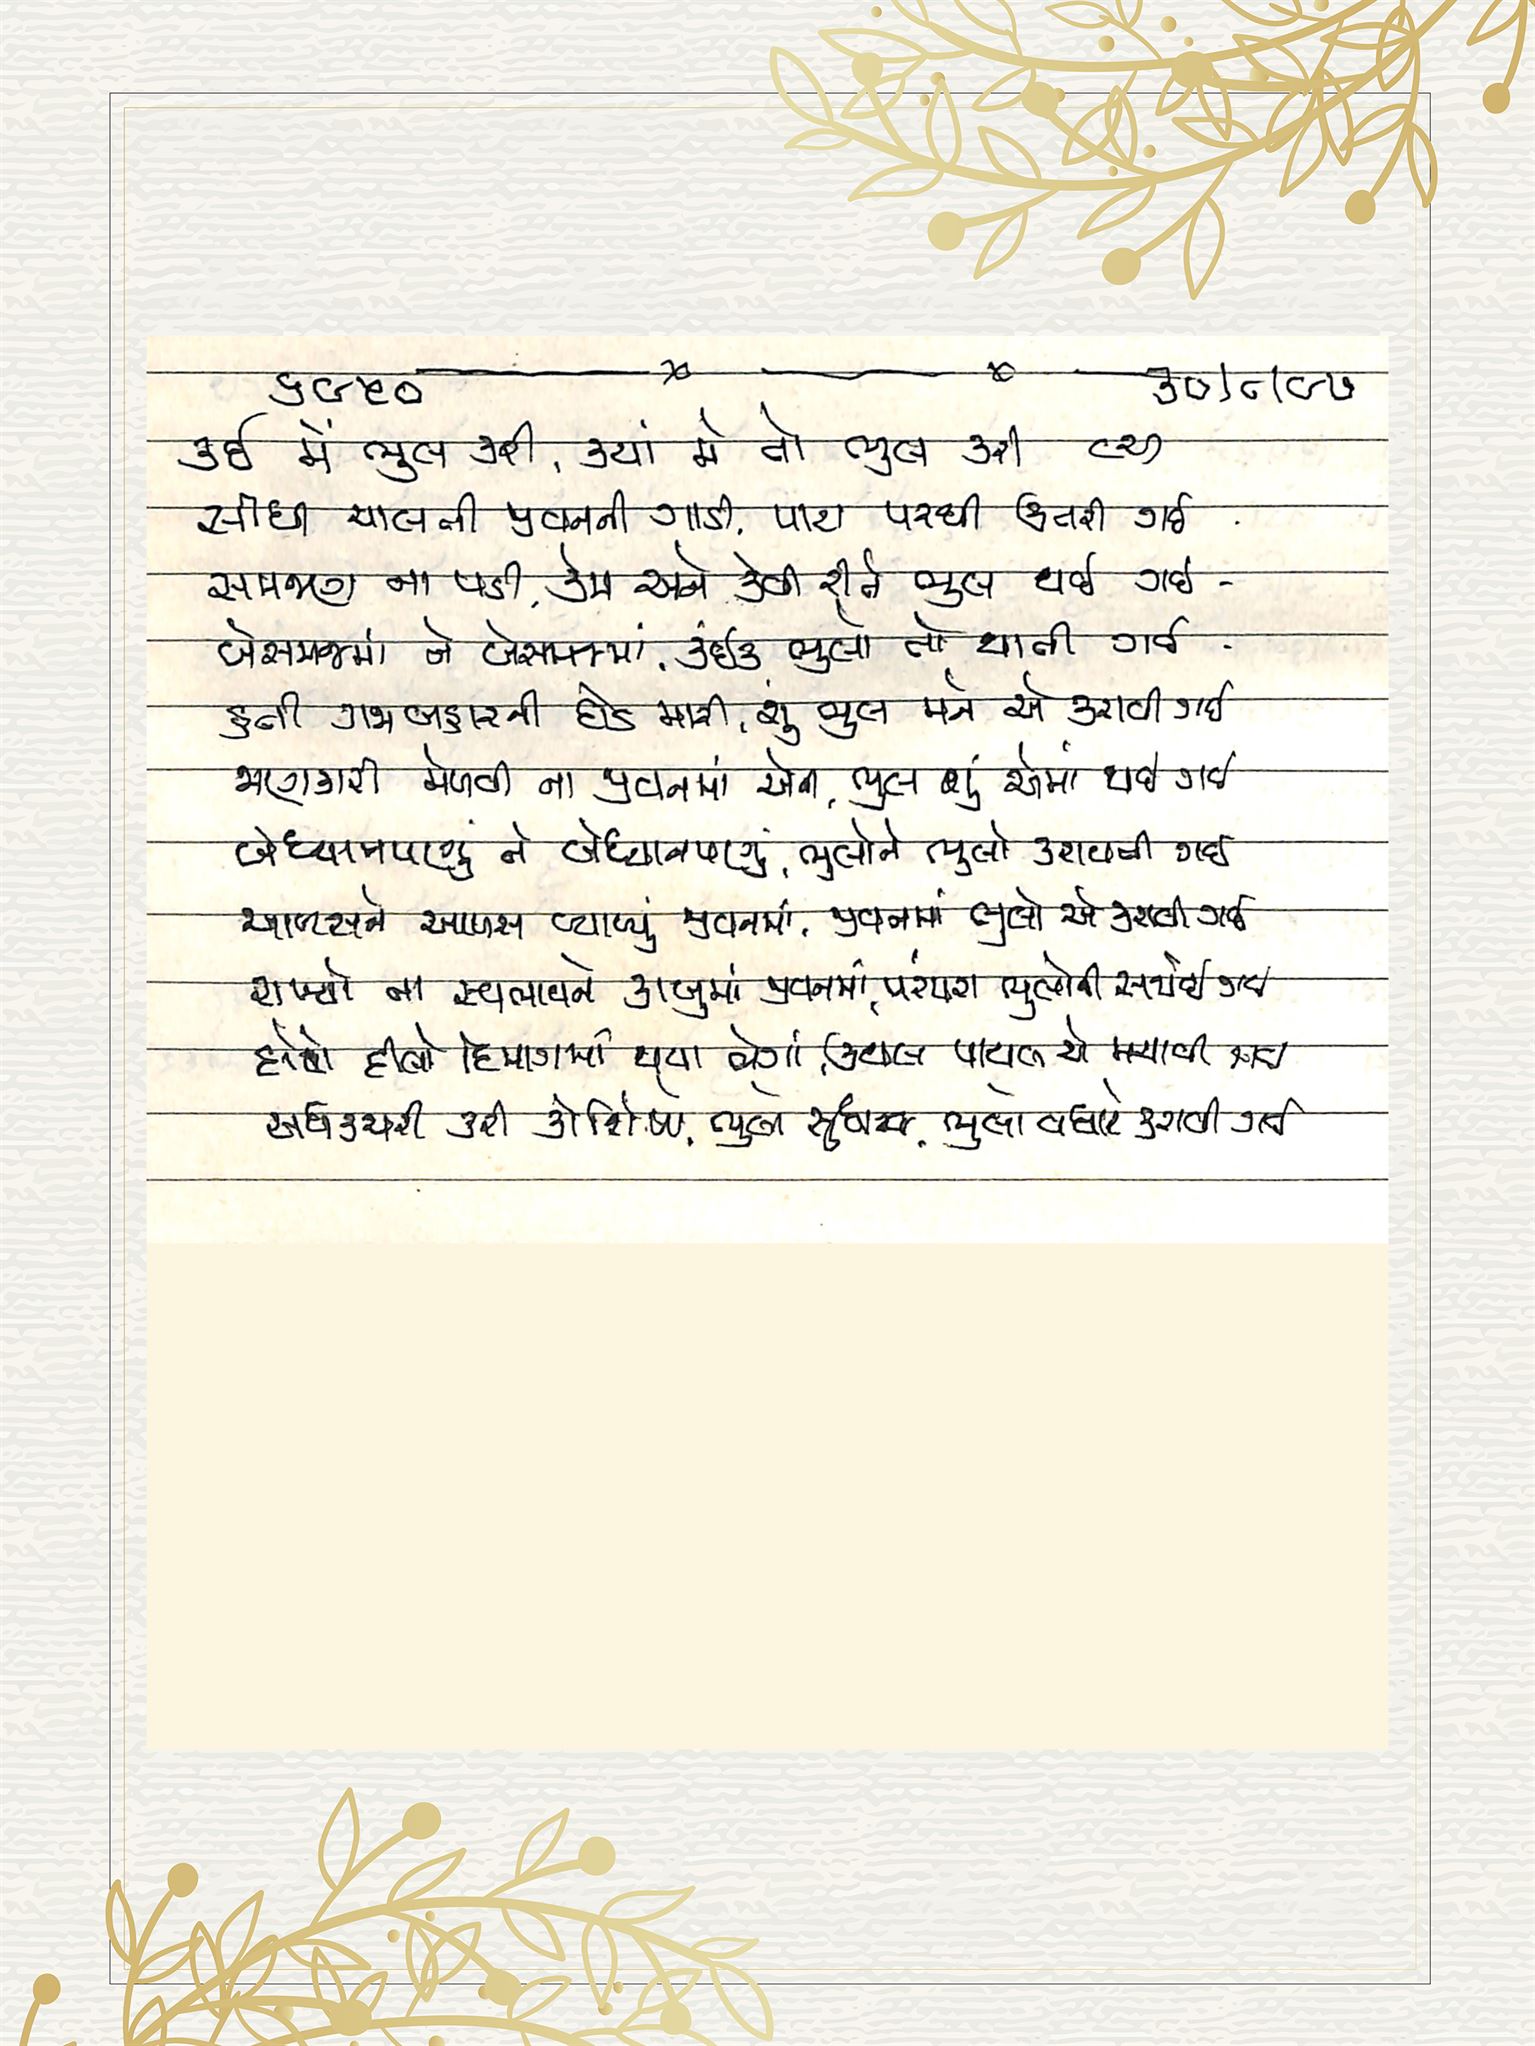 ૬૯૫૦ ૩૦/૮/૯૭
કઈ મેં ભુલ કરી, ક્યાં મે તો ભુલ કરી
સીધી ચાલતી જીવનની ગાડી, પાટા પરથી ઉતરી ગઈ
સમજણ ના પડી, કેમ અને કેવી રીતે ભુલ થઈ ગઈ -
બેસમજમાં ને બેસમજમાં, કંઈક ભુલો તો થાતી ગઈ -
કુની ગજબહારની હોડ મારી, શું ભુલ મને એ કરાવી ગઈ
જાણકારી મેળવી ના જીવનમાં એની, ભુલ શું એમાં થઈ ગઈ
બેધ્યાનપણું ને બેધ્યાનપણું, ભુલોને ભુલો કરાવતી ગઈ
આળસને આળસ વ્યાપ્યું જીવનમાં, જીવનમાં ભુલો એ કરાવી ગઈ
રાખ્યો ના સ્વભાવને કાબુમાં જીવનમાં, પરંપરા ભુલોની સર્જાઈ ગઈ
હિમાગમાં થયા ભેગાં, એ મચાવી ગઈ
અધકચરી કરી કોશિષો, ભુલો સુધારવા, ભુલો વધારે કરાવી ગઈ